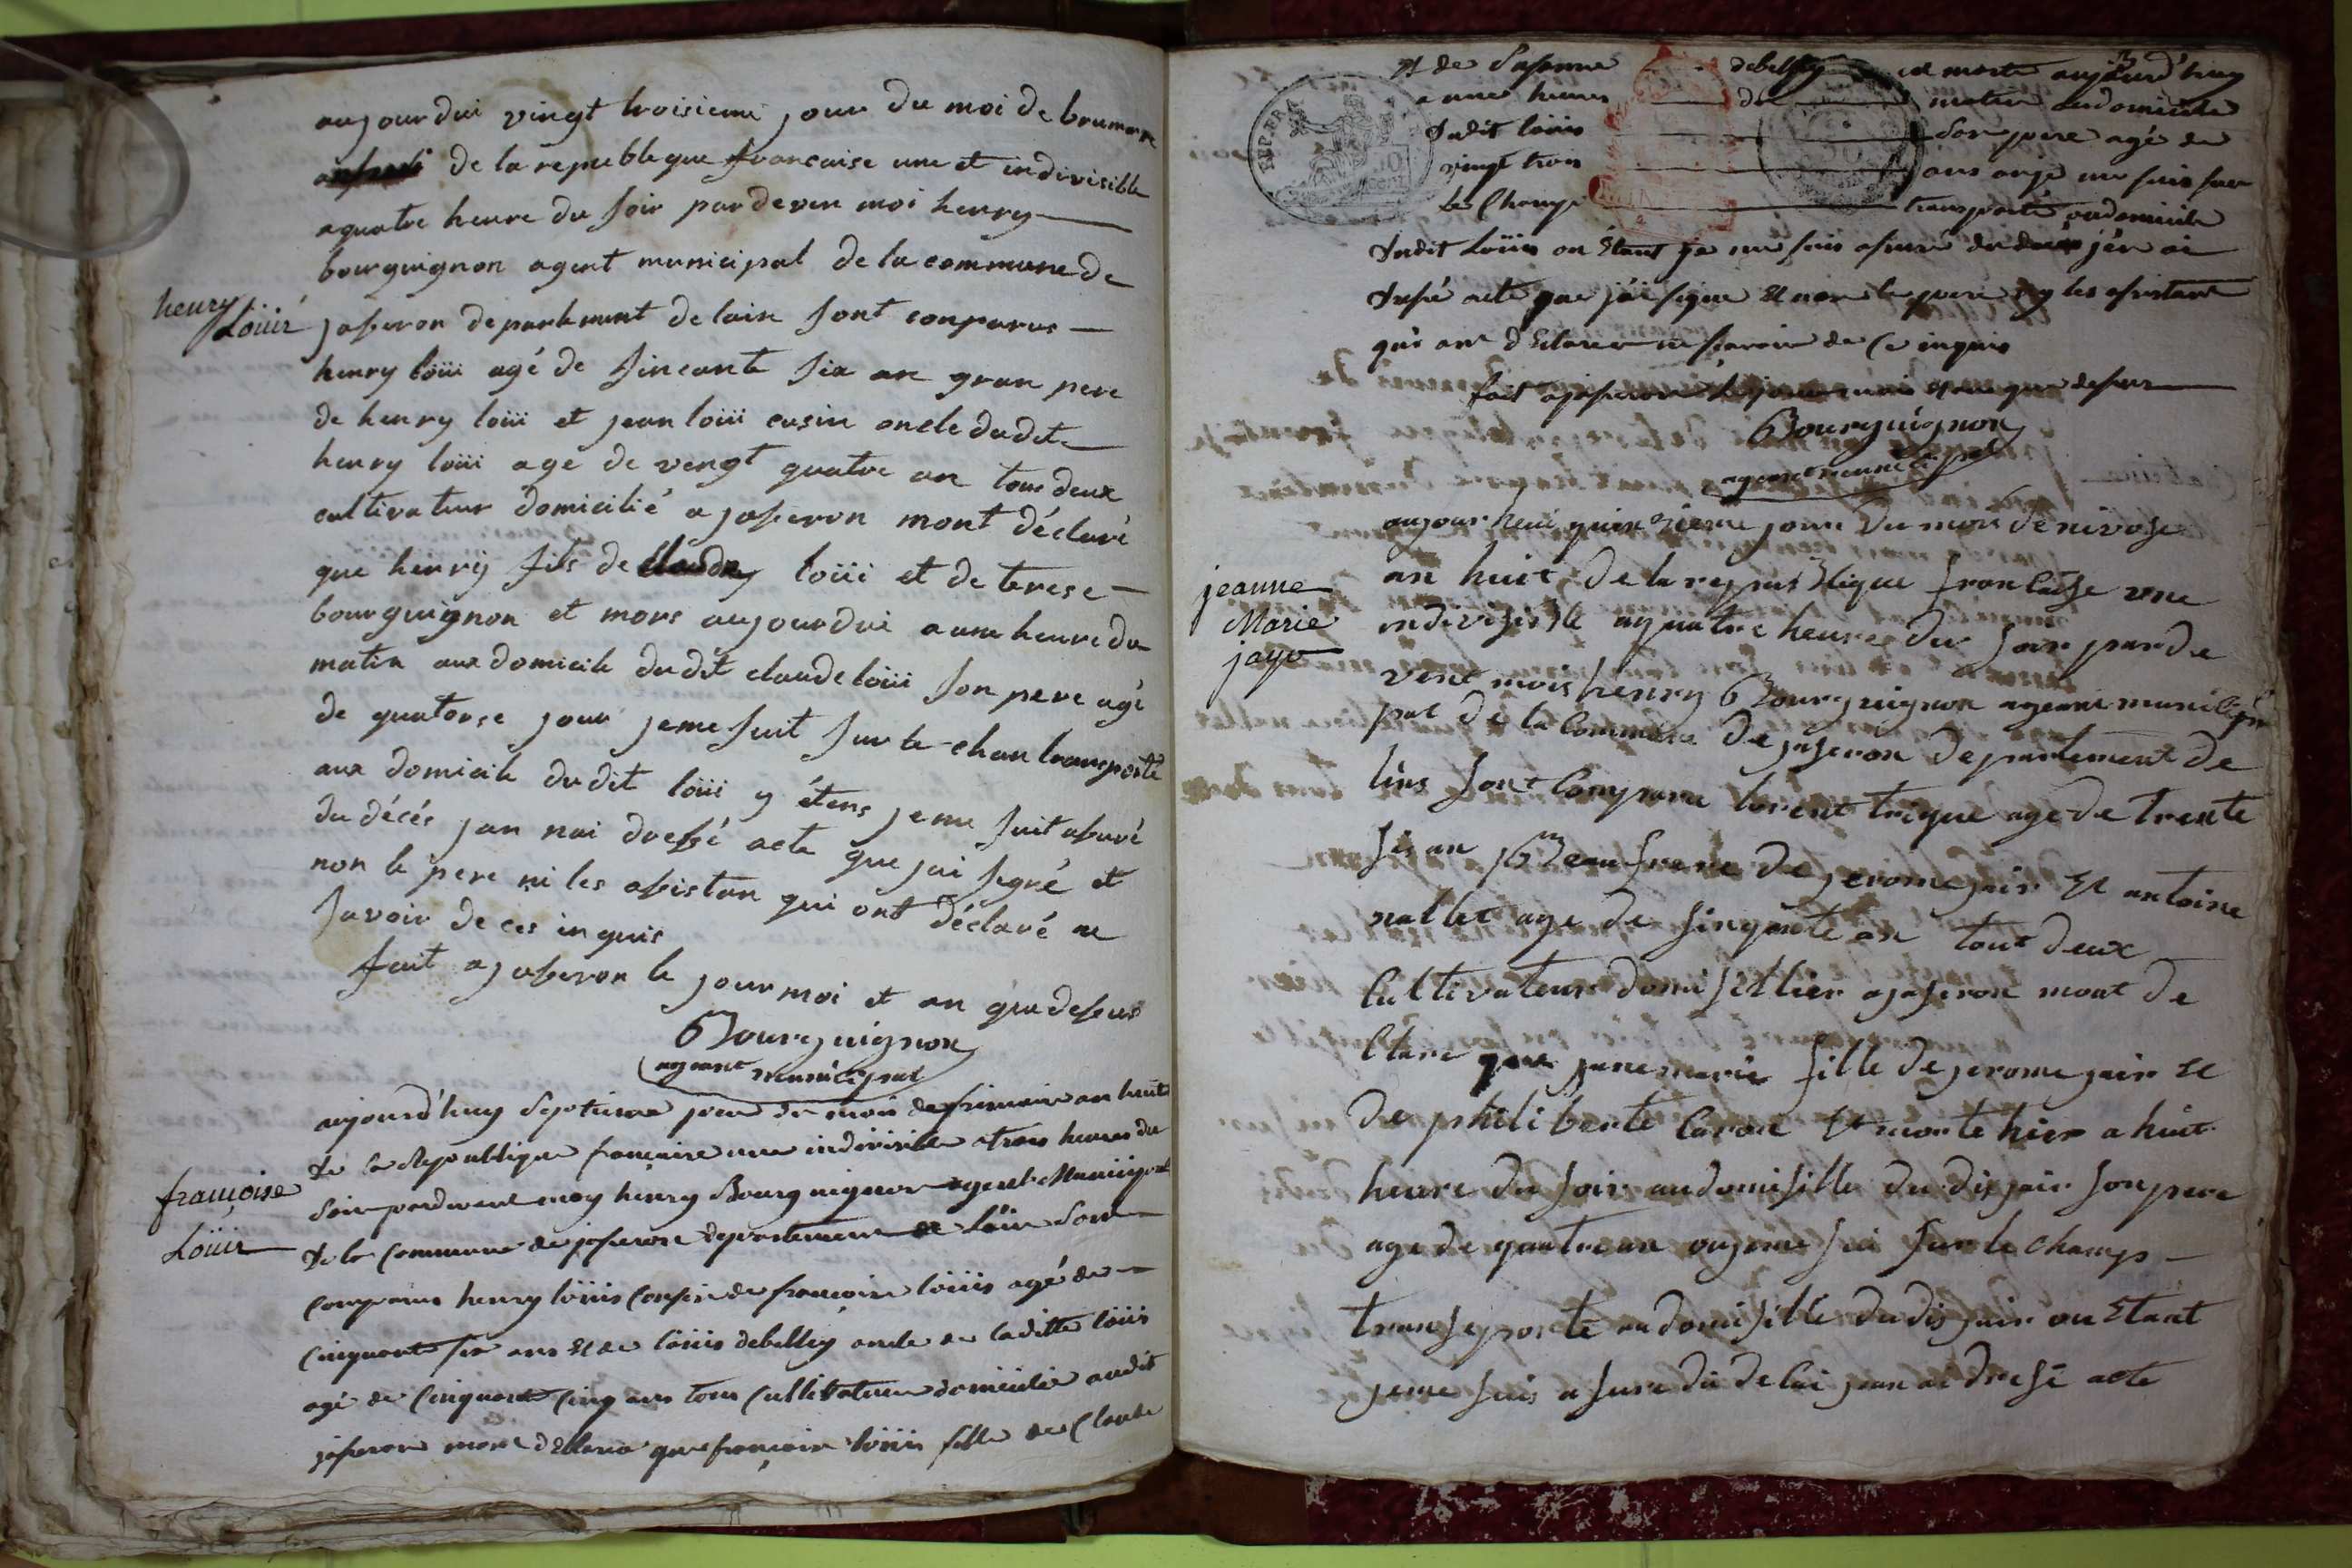 aujourdui vingt troisieme jour du moi de brumere
de la republeque francaise une et indivisible
a quatre heure du soir par deven moi henry
bourguignon agent municipal de la commune de
henry Loüis
jasseron departemant de lain sont conparus
henry loüi agé de sincante six an gran pere
de henry loüi et jean loüi cusin oncle dudit
henry loüi agé de vengt quatre an tous deux
cultivateur domicilié a jasseron mont déclaré
que henry fils de claude loüi et de terese
bourguignon et mors aujourdui a une heure du
matin aux domicile du dit claude loüi son pere agé
de quatorse jour je me suit sur le chan transporté
aux domicile du dit loüi y étens je me suit asuré
du décés jan nai dressé acte que jai signé et
non le pere ni les asistan qui ont déclaré ne
savoir de ces inquis
fait a jasseron le jour moi et an que dessus
Bourguignon
ageant municipal
aujourd'huy septieme jour du mois de frimaire an huit
de la Republique francaise une indivisible a trois heures du
soir pardevant moy henry Bourguignon agent Municipal
françoise Loüis
de la Commune de jasseron departement de l'ain sont
comparus henry loüis cousin de francoise loüis agé de
cinquante six ans et de loüis debelley oncle de laditte loüis
agé de cinquante cinq ans tous cultivateur domicilié audit
jasseron mont déclaré que francoise loüis fille de Claude
et de debelley est morte aujourd'huy
a une heures du matin audomicile
dudit loüis son pere agé de
vingt trois ans je me suis sur
le Champ transporté audomicile
dudit Loüis ou Etant je me suis assuré du deces j'en ai
dressé acte que j'ai signé et non le pere ny les assistant
qui ont déclarer ne savoir de ce inquis
fait a jasseron le jour mois et an que dessus
Bourguignon
ageant municipal
aujour heui quinzieme jour du mois de nivose
jeanne Marie jayr
an huit de la republique francaise une
indivisible a quatre heure du soir par de
vent mois henry Bourguignon ageant municipal
pal de la Commune de jaseron departement de
lins sont Comparu lorent trique age de trente
sis an Beau frere de jerome jair et antoine
nallet age de sinquante an tout deux
Cultivateur domisillier a jaseron mont de
Clare que jane marie fille de jerome jair et
de philiberte Caron et morte hier a huit
heure du soir au domisille du dis jair son pere
age de quatre an ou je me sui sur le champs
transeporté au domisille du dis jair ou Etant
je me suis asure du desai jean ai dresé acte